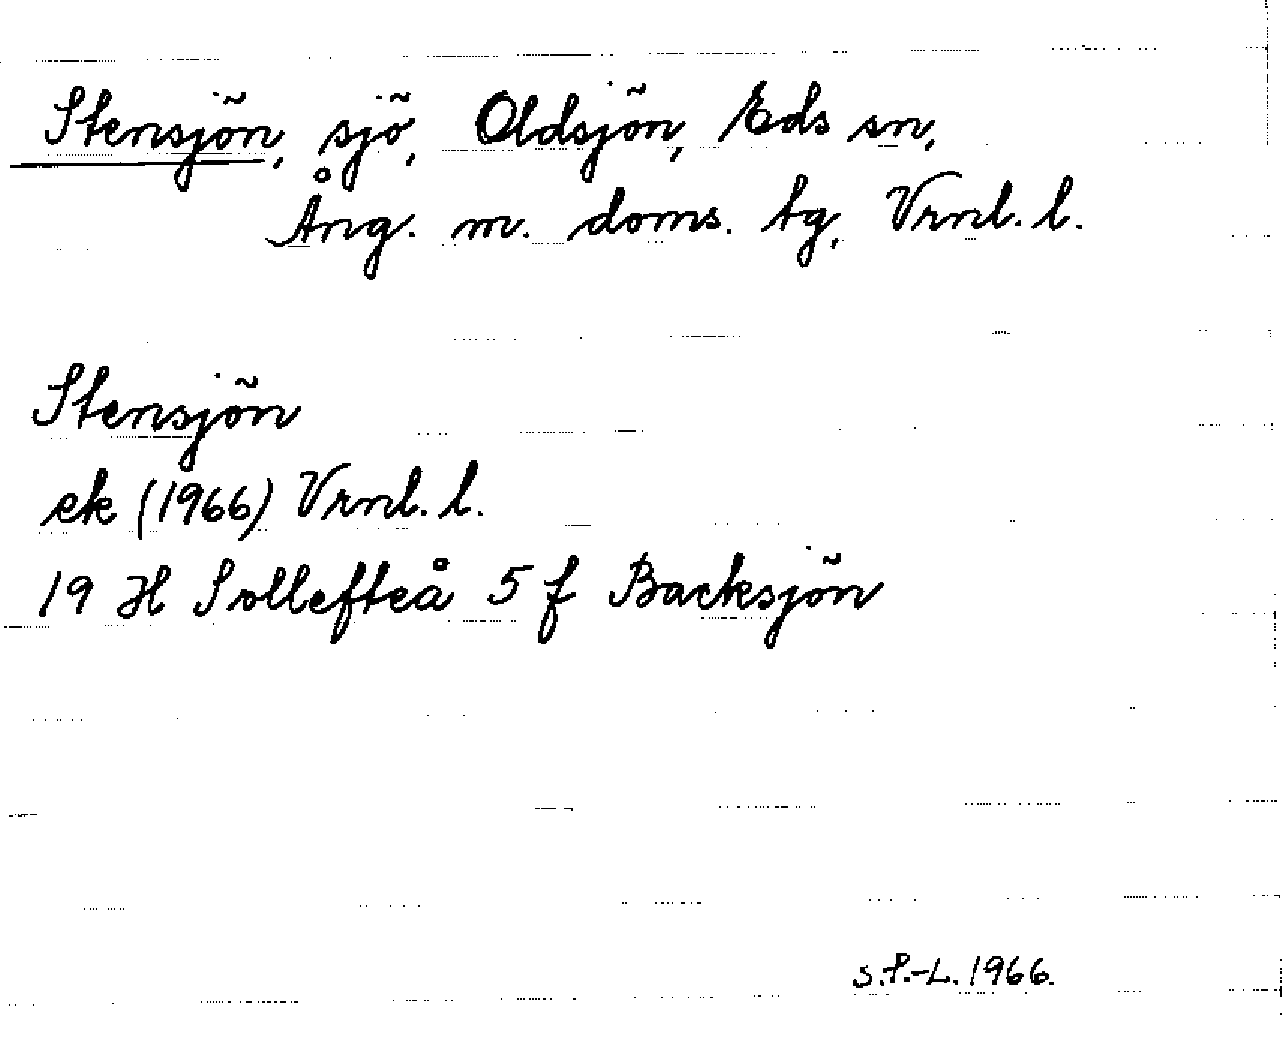 Stensjön, sjö, Oldsjön, Eds sn,
Ång. m. doms. tg, Vrnl. l.
Stensjön
ek (1966) Vrnl. l.
19 H Sollefteå 5 f Backsjön
S.P.-L. 1966.